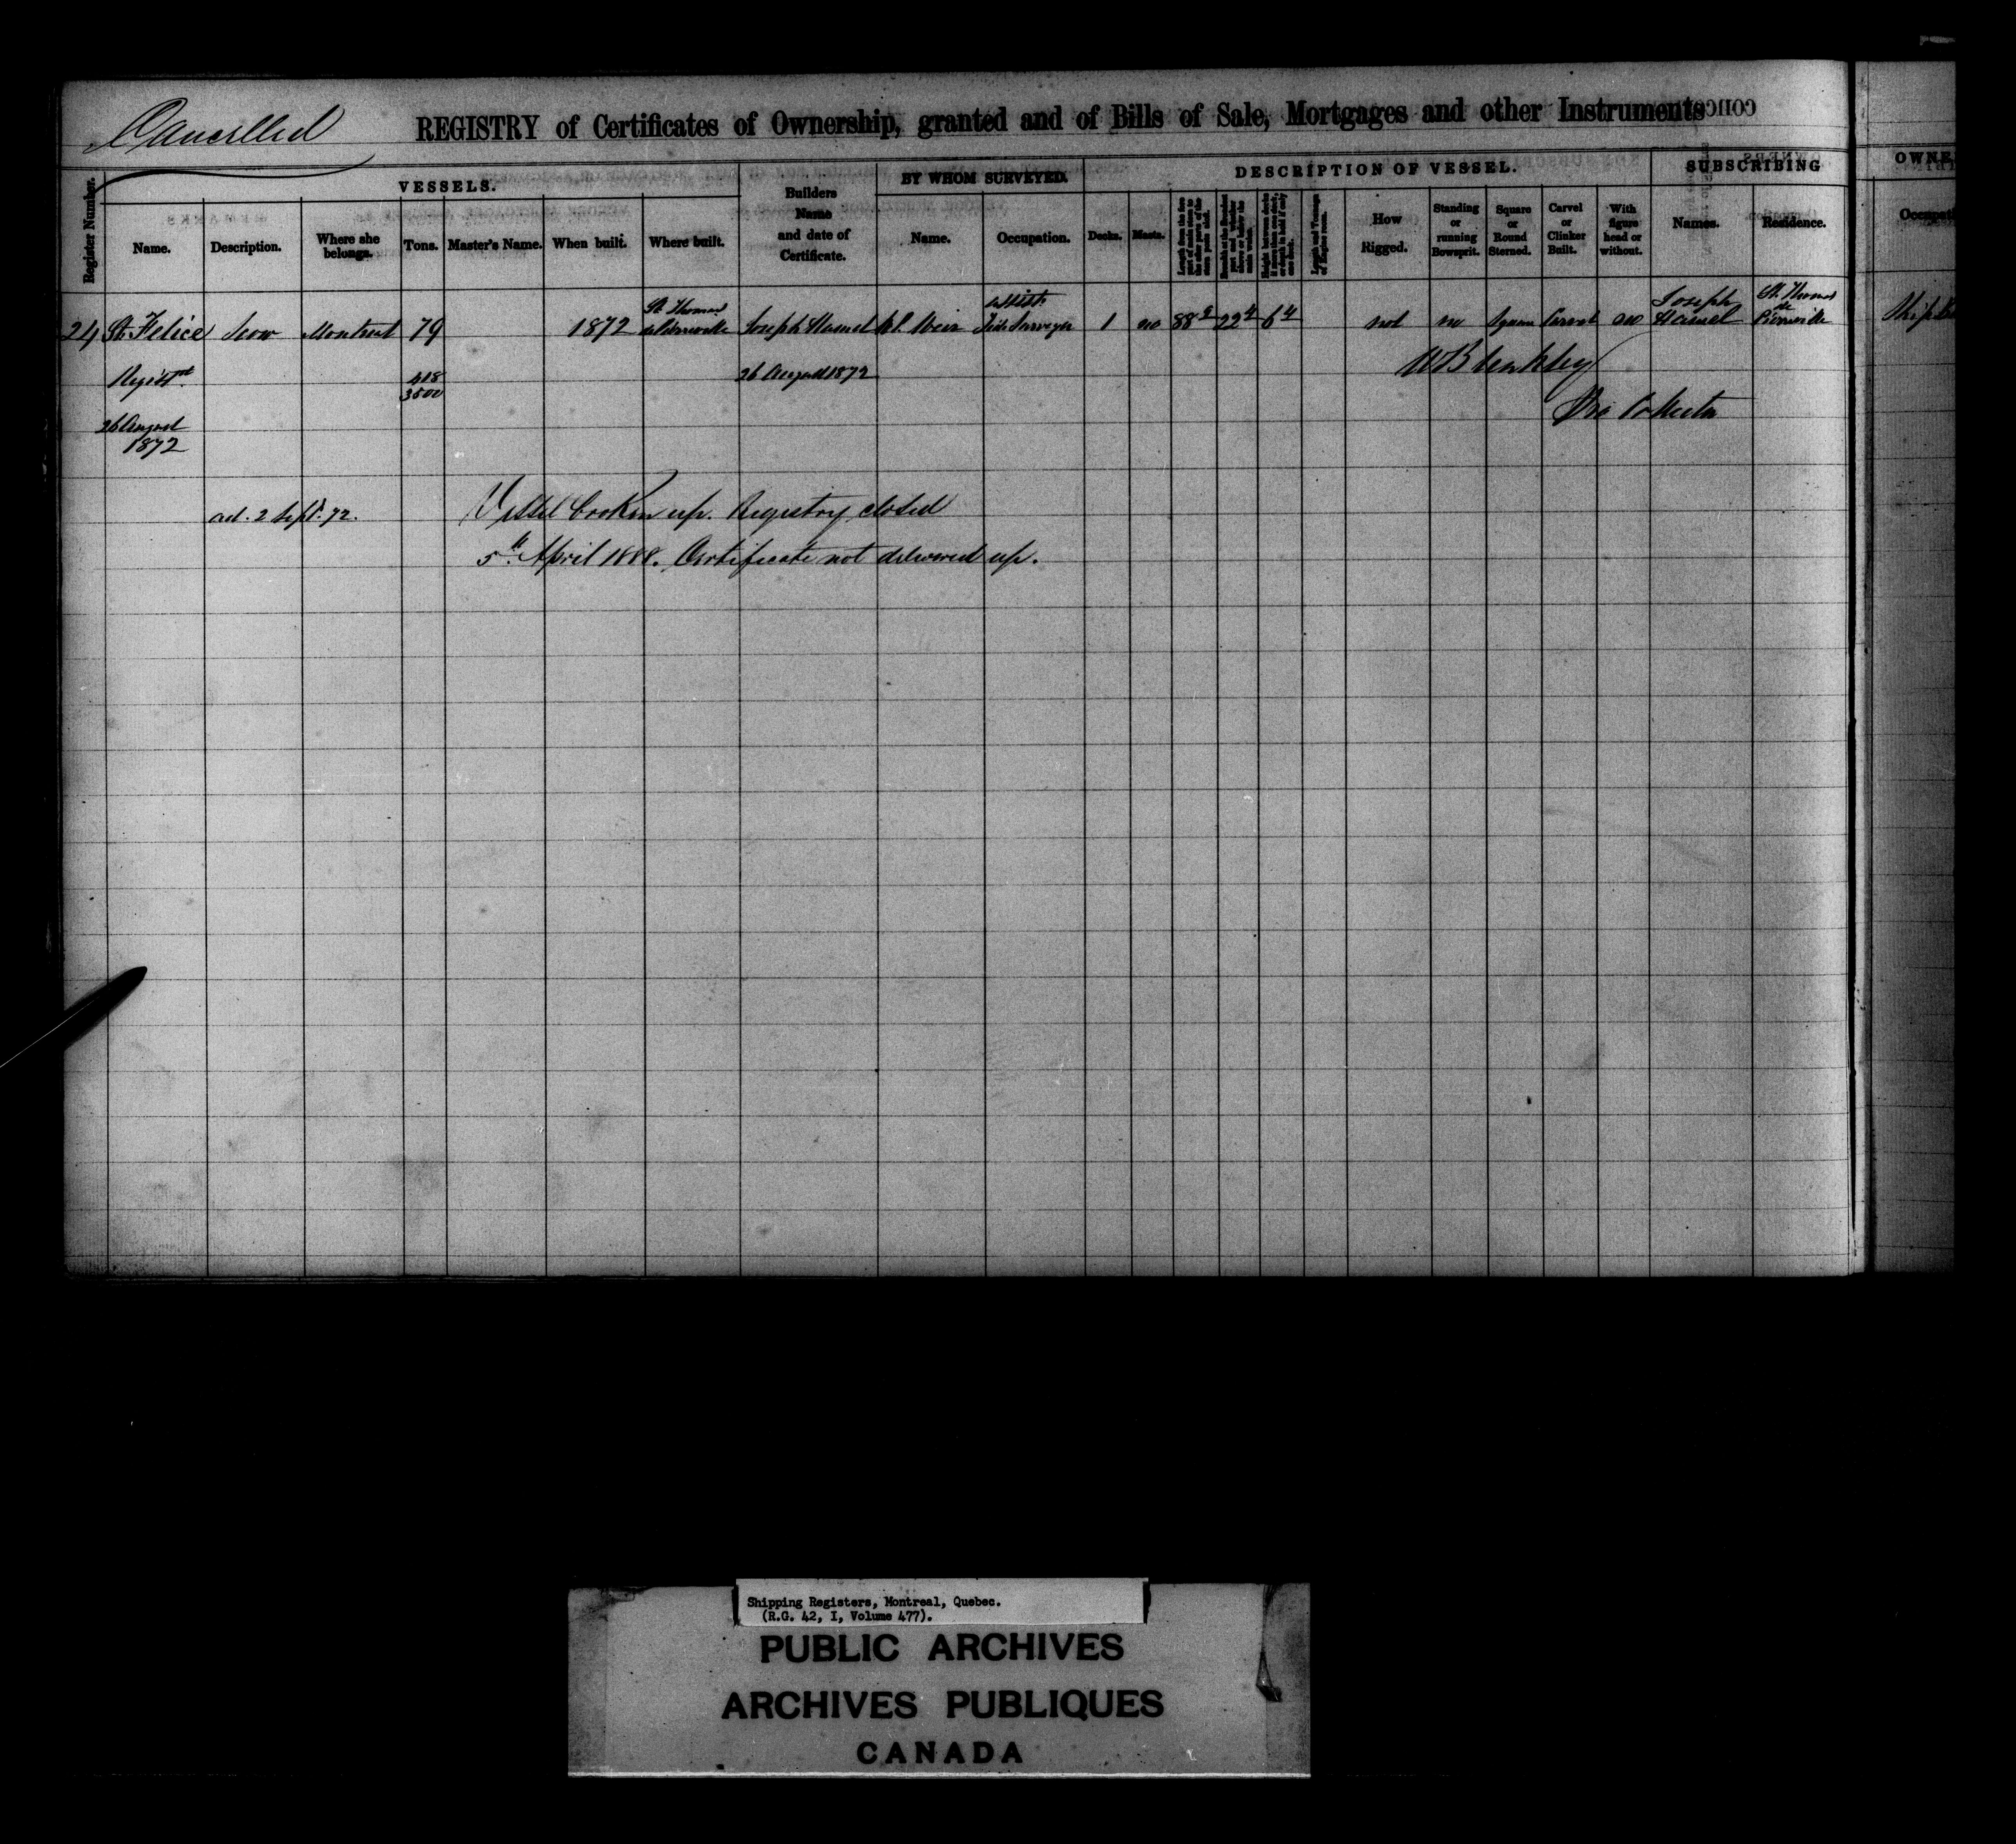 Cancelled
REGISTRY of Certificates of Ownership, granted and of Bills of Sale, Mortgages and other Instruments
VESSELS. BY WHOM SURVEYED. DESCRIPTION OF VESSEL. SUBSCRIBING OWNE
Register Number. Name. Description. Where she belongs. Tons. Master's Name. When built. Where built. Builders Name and date of Certificate. Name. Occupation. Decks. Masts. Length and Tonnage of Engine room. How Rigged. Standing or running Bowsprit. Square or Round Sterned. Carvel or Clinker Built. With figure head or without. Names. Residence. Occupati
24 St. Felice Scow Montreal 79 1872 St. Thomas de Pierreville Joseph Hamel Weir Assistt. Tide Surveyor 1 no 88 22 4 6 4 not no Square Carvel no Joseph Hamel St. Thomas de Pierreville Ship
Registd. 418 26 August 1872
3500
26 August
1872
ad. 2 Sept. 72. Vessel broken up. Registry closed
5th April 1888. Certificate not delivered up.
Shipping Registers, Montreal, Quebec.
(R.G. 42, I, Volume 477).
PUBLIC ARCHIVES
ARCHIVES PUBLIQUES
CANADA